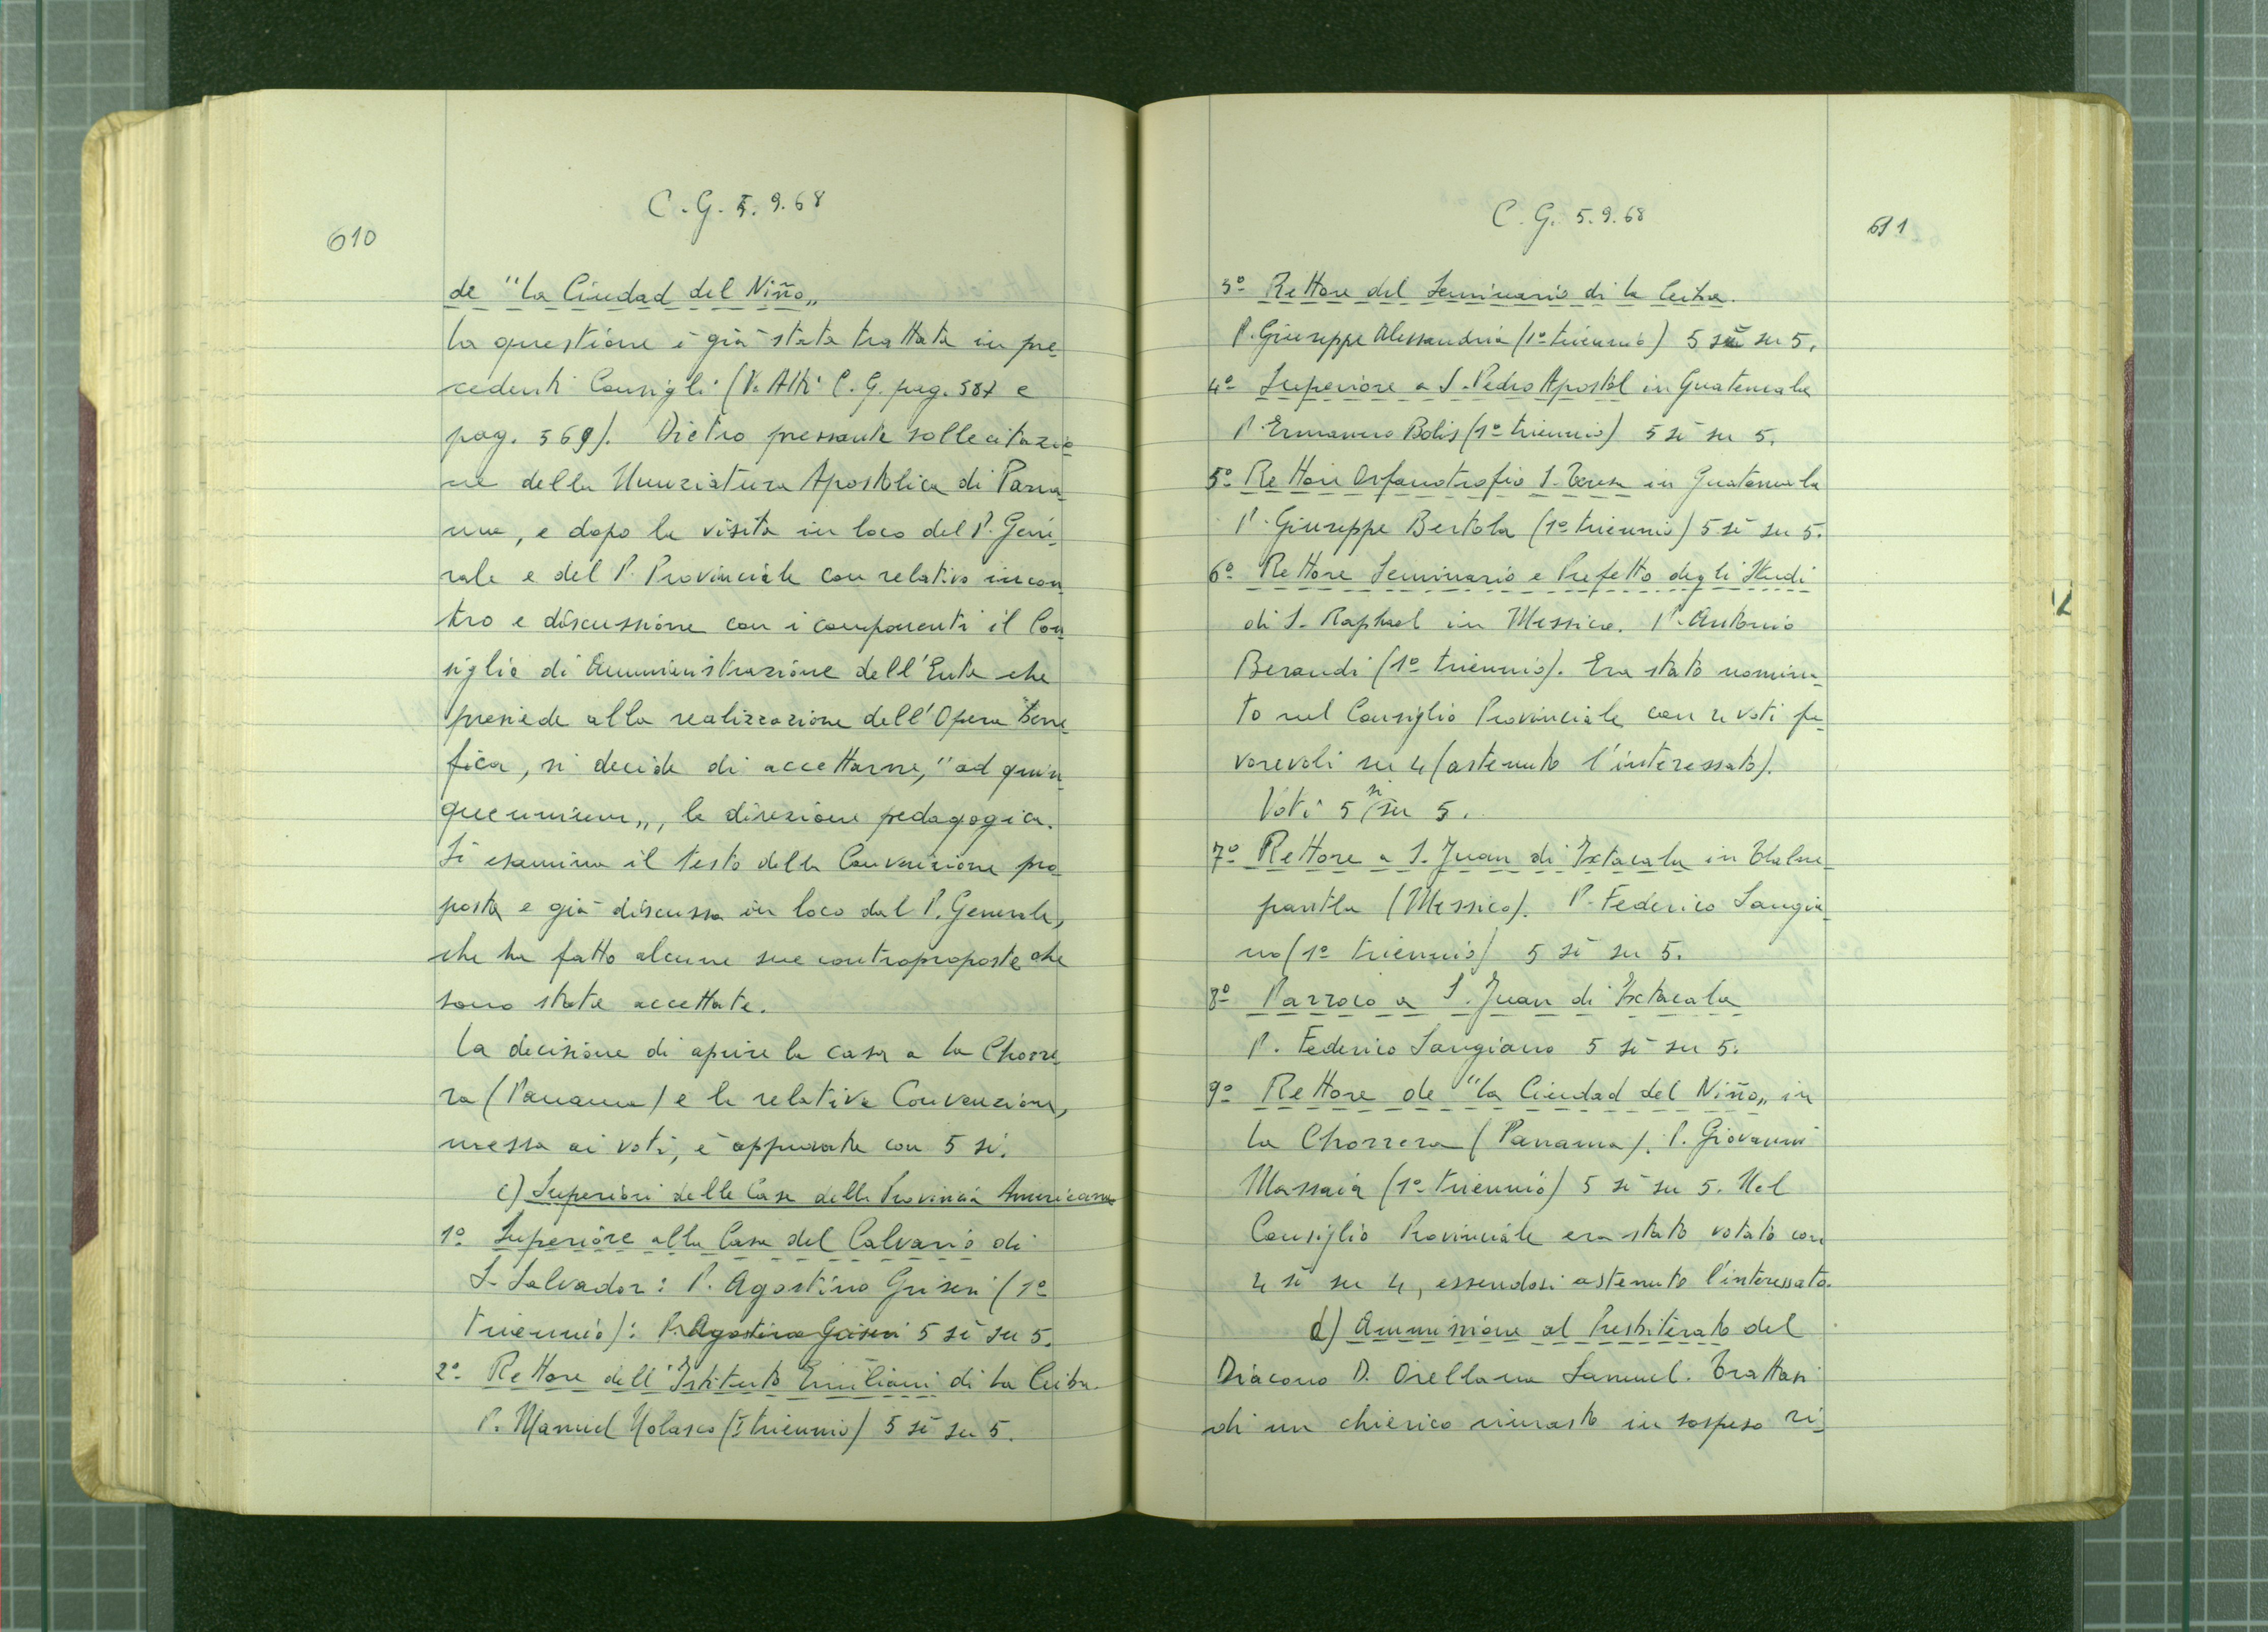 610
C.G. 5.9.68
de "La Ciudad del Niño„
La questione è già stata trattata in pre
cedenti Consigli (V. Atti C.G. pag. 587 e
pag. 569). Dietro pressante sollecitazio
ne della Nunziatura Apostolica di Pana
ma, e dopo la visita in loco del P. Gene
rale e del P. Provinciale con relativo incon
tro e discussione con i componenti il Con
siglio di Amministrazione dell'Ente che
presiede alla realizzazione dell'Opera Bene
fica, si decide di accettarne, "ad quin
quennium„, la direzione pedagogica.
Si esamina il testo della Convenzione pro
posta e già discussa in loco dal P. Generale,
che ha fatto alcune sue controproposte che
sono state accettate.
La decisione di aprire la casa a La Chorre
ra (Panama) e la relativa Convenzione,
messa ai voti, è approvata con 5 sì.
c) Superiori delle Case della Provincia Americana
1º Superiore alla Casa del Calvario di
S. Salvador: P. Agostino Griseri (1º
triennio): P. Agostino Griseri 5 sì su 5.
2º Rettore dell'Istituto Emiliani di La Ceiba.
P. Manuel Nolasco (I triennio) 5 sì su 5.
C.G. 5.9.68
611
3º Rettore del Seminario di La Ceiba.
P. Giuseppe Alessandria (1º triennio) 5 sì su 5.
4º Superiore a S. Pedro Apostol in Guatemala
P. Ermanno Bolis (1º triennio) 5 sì su 5.
5º Rettore Orfanotrofio S. Teresa in Guatemala
P. Giuseppe Bertola (1º triennio) 5 sì su 5.
6º Rettore Seminario e Prefetto degli Studi
di S. Raphael in Messico. P. Antonio
Beraudi (1º triennio). Era stato nomina
to nel Consiglio Provinciale con 4 voti fa
vorevoli su 4 (astenuto l'interessato).
Voti 5 sì su 5.
7º Rettore a S. Juan di Ixtacala in Tlalne
pantla (Messico). P. Federico Sangia
no (1º triennio) 5 sì su 5.
8º Parroco a S. Juan di Ixtacala
P. Federico Sangiano 5 sì su 5.
9º Rettore de "La Ciudad del Niño„ in
La Chorrera (Panama). P. Giovanni
Massaia (1º triennio) 5 sì su 5. Nel
Consiglio Provinciale era stato votato con
4 sì su 4, essendosi astenuto l'interessato.
d) Ammissione al Presbiterato del
Diacono D. Orellana Samuel. Trattasi
di un chierico rimasto in sospeso ri